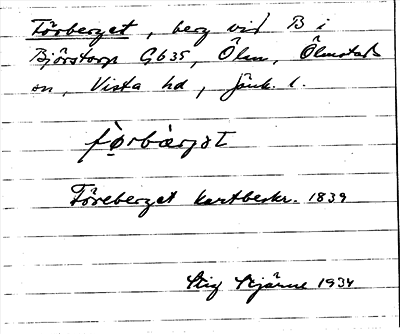 Förberget, berg vid B i
Björstorp Gb 35, Ölm, Ölmstad
sn, Vista hd, Jönk. l.
fø̀rbær̀jət
Föreberget kartbeskr. 1839
Stig Stjärne 1934